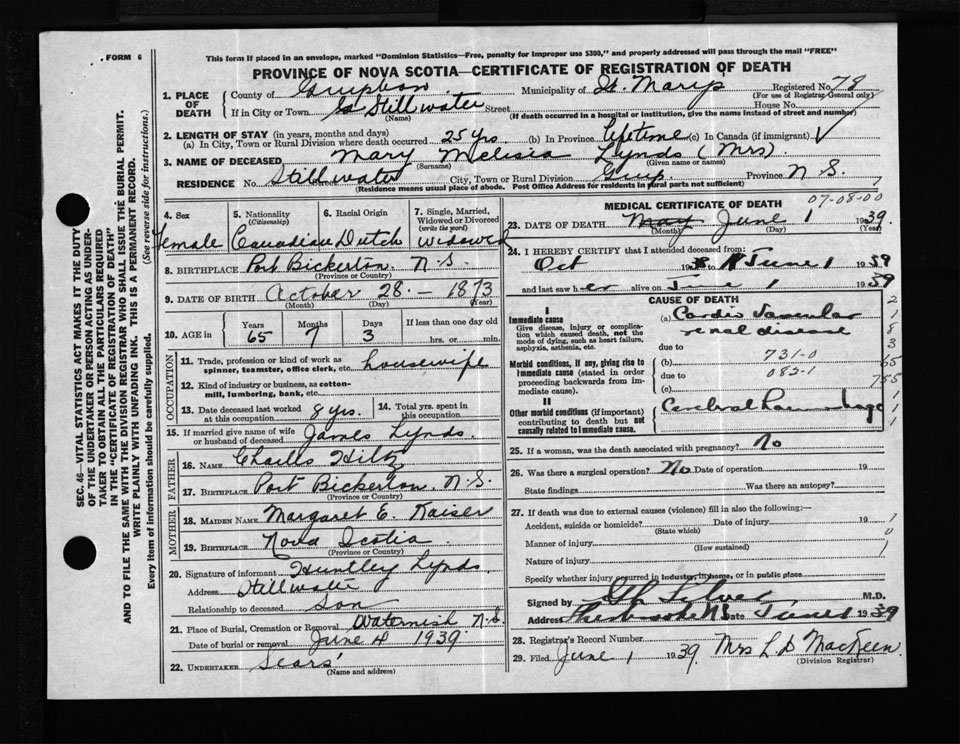 FORM 6
This form if placed in an envelope, marked "Dominion Statistics—Free, penalty for improper use $300," and properly addressed will pass through the mail "FREE"
PROVINCE OF NOVA SCOTIA—CERTIFICATE OF REGISTRATION OF DEATH
1. PLACE OF DEATH
County of
Municipality of St. Marys
Registered No. 78
(For use of Registrar General only)
If in City or Town Stillwater Street House No.
(Name) (If death occurred in a hospital or institution, give the name instead of street and number)
2. LENGTH OF STAY (in years, months and days)
(a) In City, Town or Rural Division where death occurred 25 yrs. (b) In Province lifetime (c) In Canada (if immigrant)
3. NAME OF DECEASED Mary Melisia Lynds (Mrs)
(Surname) (Given name or names)
RESIDENCE No. Stillwater Street City, Town or Rural Division Guy. Province N S.
(Residence means usual place of abode. Post Office Address for residents in rural parts not sufficient)
4. Sex 5. Nationality (Citizenship) 6. Racial Origin 7. Single, Married, Widowed or Divorced (write the word)
Female Canadian Dutch Widowed
8. BIRTHPLACE Port Bickerton. N. S.
(Province or Country)
9. DATE OF BIRTH October 28. – 1873
(Month) (Day) (Year)
10. AGE in Years Months Days If less than one day old
65 7 3 hrs. or min.
OCCUPATION
11. Trade, profession or kind of work as spinner, teamster, office clerk, etc. housewife
12. Kind of industry or business, as cotton-mill, lumbering, bank, etc.
13. Date deceased last worked at this occupation 8 yrs. 14. Total yrs. spent in this occupation
15. If married give name of wife or husband of deceased James Lynds.
FATHER
16. NAME Charles Hiltz
17. BIRTHPLACE Port Bickerton. N. S.
(Province or Country)
MOTHER
18. MAIDEN NAME Margaret E. Kaiser
19. BIRTHPLACE Nova Scotia
(Province or Country)
20. Signature of informant Huntley Lynds.
Address Stillwater
Relationship to deceased Son
21. Place of Burial, Cremation or Removal Waternish N.S.
Date of burial or removal June 4 1939.
22. UNDERTAKER Sears'
(Name and address)
MEDICAL CERTIFICATE OF DEATH
07-08-00
23. DATE OF DEATH May June 1 1939.
(Month) (Day) (Year)
24. I HEREBY CERTIFY that I attended deceased from:
Oct 193 June 1 1939
and last saw her alive on June 1 1939
CAUSE OF DEATH
I
Immediate cause
Give disease, injury or complication which caused death, not the mode of dying, such as heart failure, asphyxia, asthenia, etc.
(a) Cardio Vascular
renal disease
due to
Morbid conditions, if any, giving rise to immediate cause (stated in order proceeding backwards from immediate cause).
(b) 731-0
due to 082-1
(c)
II
Other morbid conditions (if important) contributing to death but not causally related to immediate cause.
Cerebral
25. If a woman, was the death associated with pregnancy? No
26. Was there a surgical operation? No Date of operation 19
State findings Was there an autopsy?
27. If death was due to external causes (violence) fill in also the following:—
Accident, suicide or homicide? Date of injury 19
(State which)
Manner of injury
(How sustained)
Nature of injury
Specify whether injury occurred in industry, in home, or in public place
Signed by M.D.
Address Sherbrooke N.S. June 1 1939
28. Registrar's Record Number
29. Filed June 1 1939. Mrs L D MacKeen
(Division Registrar)
SEC. 46—VITAL STATISTICS ACT MAKES IT THE DUTY
OF THE UNDERTAKER OR PERSON ACTING AS UNDER-
TAKER TO OBTAIN ALL THE PARTICULARS REQUIRED
IN THE "CERTIFICATE OF REGISTRATION OF DEATH"
AND TO FILE THE SAME WITH THE DIVISION REGISTRAR WHO SHALL ISSUE THE BURIAL PERMIT.
WRITE PLAINLY WITH UNFADING INK. THIS IS A PERMANENT RECORD.
Every item of information should be carefully supplied. (See reverse side for instructions.)